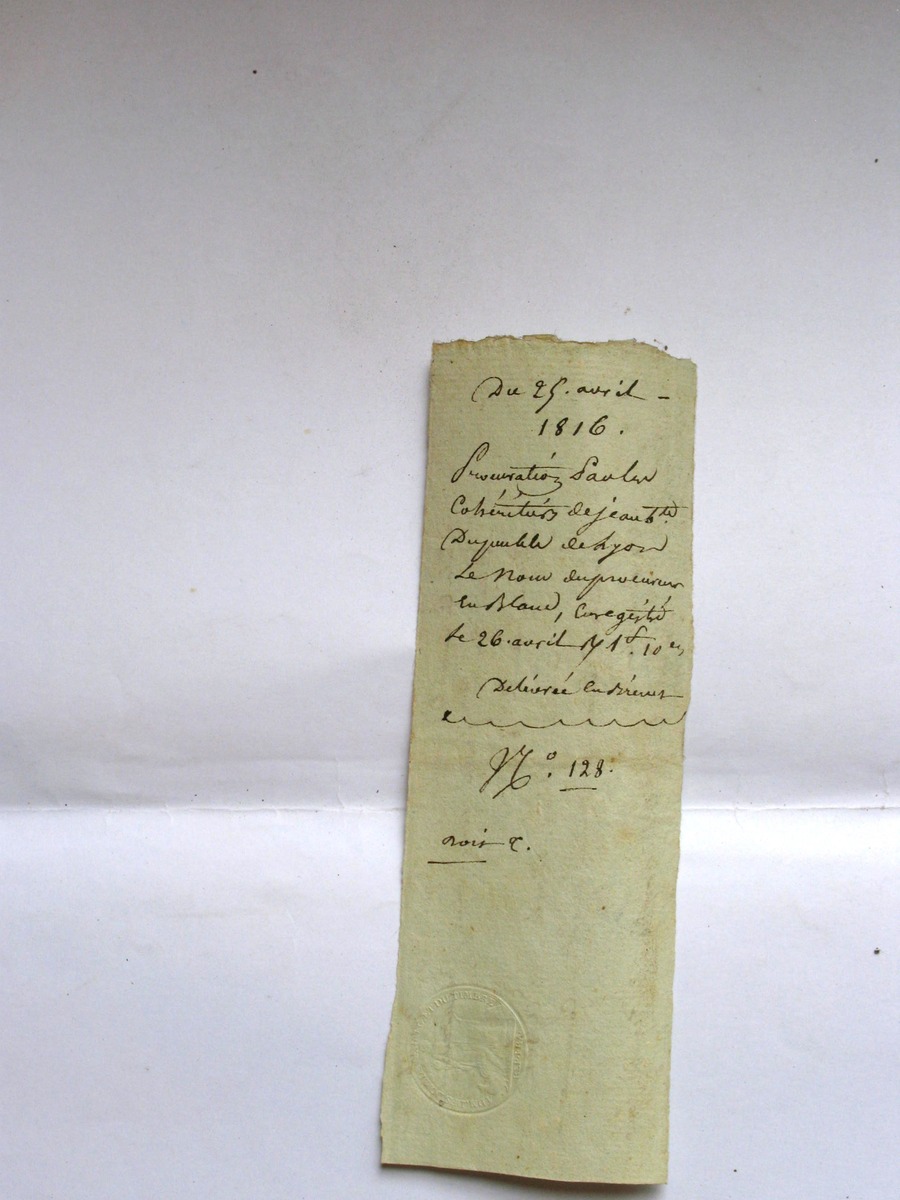 Du 25. avril -
1816.
Procuration Par les
Cohéritiers de jean b.te
de Lyon
Le Nom du procureur
En Blanc, Enregistré
le 26. avril 1816 1f. 10 c
Délivrée En Brevet
N.o 128.